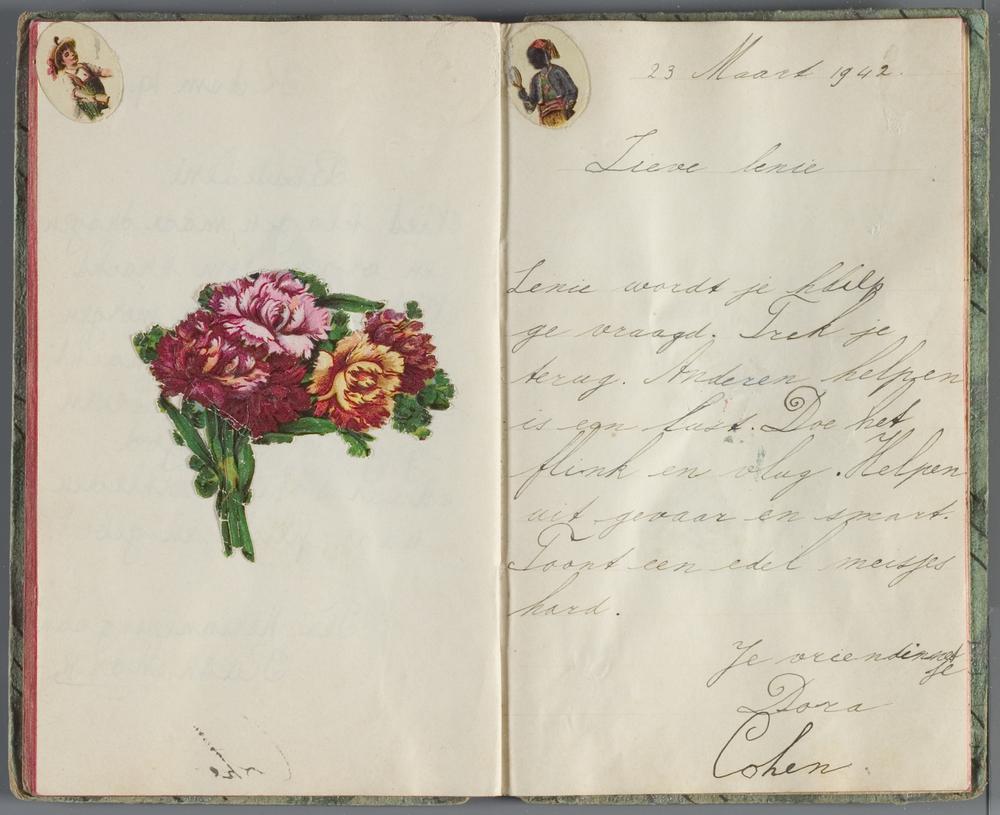 23 Maart 1942.
Lieve lenie
Lenie wordt je hulp
ge vraagd. Trek je
terug. Anderen helpen
is een lust. Doe het
flink en vlug. Helpen
uit gevaar en smart.
Toont een edel meisjes
hard.
Je vriendinnetje
Dora
Cohen